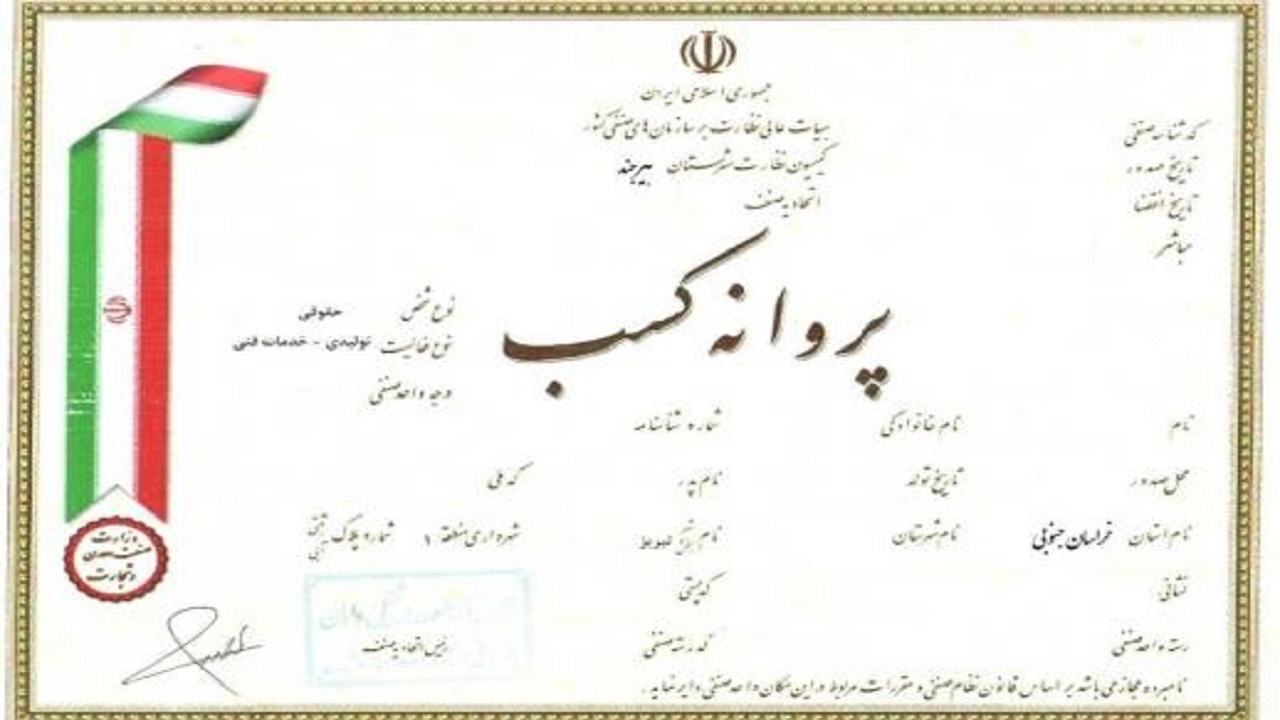 جمهوری اسلامی ایران
هیات عالی نظارت بر سازمان های صنفی کشور
کمیسیون نظارت شهرستان بیرجند
اتحادیه صنف
کد شناسه صنفی
تاریخ صدور
تاریخ انقضا
مباشر
پروانه کسب
نوع شخص حقوقی
نوع فعالیت تولیدی - خدمات فنی
درجه واحد صنفی
نام نام خانوادگی شماره شناسنامه
محل صدور تاریخ تولد نام پدر کد ملی
نام استان خراسان جنوبی نام شهرستان نام شهرداری منطقه ۱ شماره پلاک ثبتی آبی
نشانی کد پستی
رسته واحد صنفی کد رسته صنفی رئیس اتحادیه صنف
نامبرده مجاز می باشد بر اساس قانون نظام صنفی و مقررات مربوط در این مکان واحد صنفی دایر نماید .
وزارت
صنعت، معدن
و تجارت